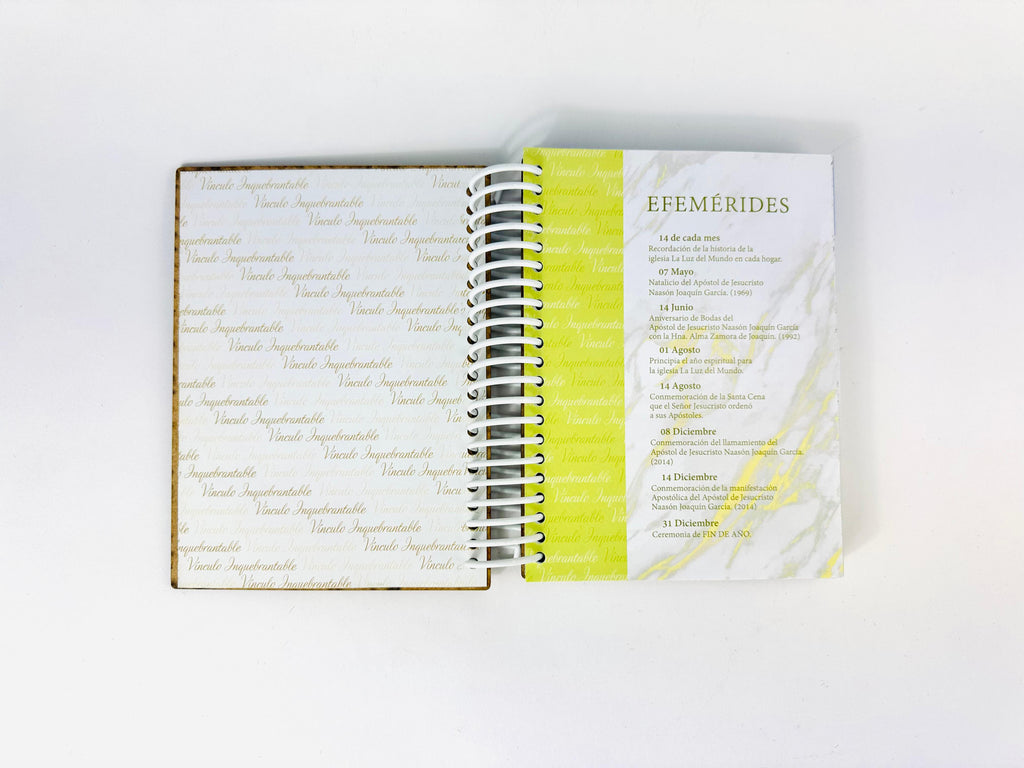 Vínculo Inquebrantable Vínculo
Vínculo Inquebrantable
Vínculo Inquebrantable
Inquebrantable Vínculo Inquebrantable
Vínculo Inquebrantable
Vínculo Inquebrantable
Vínculo Inquebrantable
Vínculo Inquebrantable
Vínculo Inquebrantable
Vínculo Inquebrantable
Vínculo Inquebrantable
Inquebrantable Vínculo Inquebrantable
Vínculo Inquebrantable
Vínculo Inquebrantable
Vínculo Inquebrantable
Inquebrantable Vínculo Inquebrantable
Vínculo Inquebrantable
Vínculo Inquebrantable
Vínculo Inquebrantable
Inquebrantable Vínculo Inquebrantable
Vínculo Inquebrantable
Vínculo Inquebrantable
EFEMÉRIDES
14 de cada mes
Recordación de la historia de la
iglesia La Luz del Mundo en cada hogar.
07 Mayo
Natalicio del Apóstol de Jesucristo
Naasón Joaquín García. (1969)
14 Junio
Aniversario de Bodas del
Apóstol de Jesucristo Naasón Joaquín García
con la Hna. Alma Zamora de Joaquín. (1992)
01 Agosto
Principia el año espiritual para
la iglesia La Luz del Mundo.
14 Agosto
Conmemoración de la Santa Cena
que el Señor Jesucristo ordenó
a sus Apóstoles.
08 Diciembre
Conmemoración del llamamiento del
Apóstol de Jesucristo Naasón Joaquín García.
(2014)
14 Diciembre
Conmemoración de la manifestación
Apostólica del Apóstol de Jesucristo
Naasón Joaquín García. (2014)
31 Diciembre
Ceremonia de FIN DE AÑO.